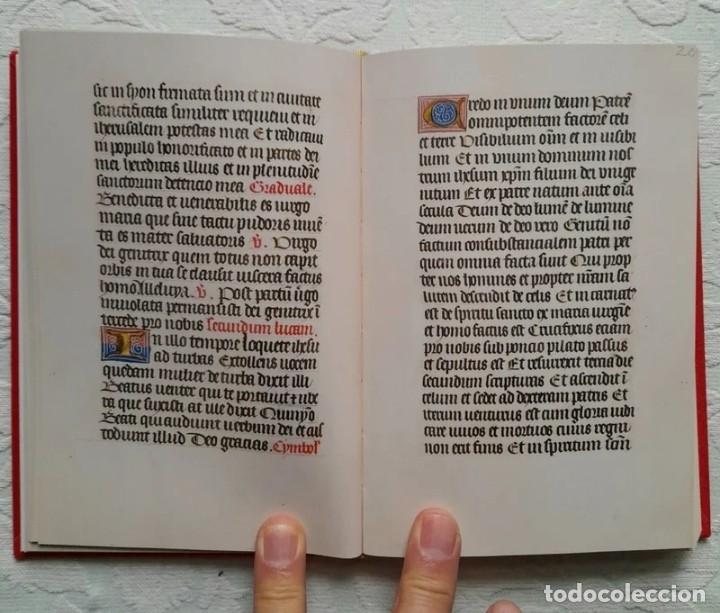 sic in syon firmata sum et in ciuitate
sanctificata similiter requieui et in
iherusalem potestas mea Et radicaui
in populo honorificato et in partes dei
mei hereditas illius et in plenitudīe
sanctorum detencio mea Graduale.
Benedicta et uenerabilis es uirgo
maria que sine tactu pudoris inuē
ta es mater saluatoris v̄. Virgo
dei genitrix quem totus non capit
orbis in tua se clausit uiscera factus
homo Alleluya. v̄. Post partū v̄go
inuiolata permansisti dei genitrix ī
tercede pro nobis Secundum lucam.
In illo tempore loquēte ihesu
ad turbas Extollens uocem
quedam mulier de turba dixit illi
Beatus uenter qui te portauit
ta que suxisti at ille dixit
Beati qui audiunt uerbum dei et cus
todiunt illud Deo gracias. Cymbol
20
Credo in vnum deum Patrē
omnipotentem factorē celi
et terre Visibilium oīm et in uisibi
lium Et in vnum dominum nos
trum ihesum xp̄m filium dei vnige
nitum Et ex patre natum ante oīa
secula Deum de deo lumē de lumine
deum uerum de deo vero Genitū nō
factum consubstancialem patri per
quem omnia facta sunt Qui prop
ter nos homines et propter nr̄am sa
lutem descendit de celis Et incarnat
est de spiritu sancto ex maria uirgīe
et homo factus est Crucifixus eciam
pro nobis sub poncio pilato passus
et sepultus est Et resurrexit tercia die
secundum scripturas Et ascendit ī
celum et sedet ad dexteram patris Et
iterum venturus est cum gloria iudi
care viuos et mortuos cuius regni
non erit finis Et in spiritum
todocoleccion
todocoleccion.net